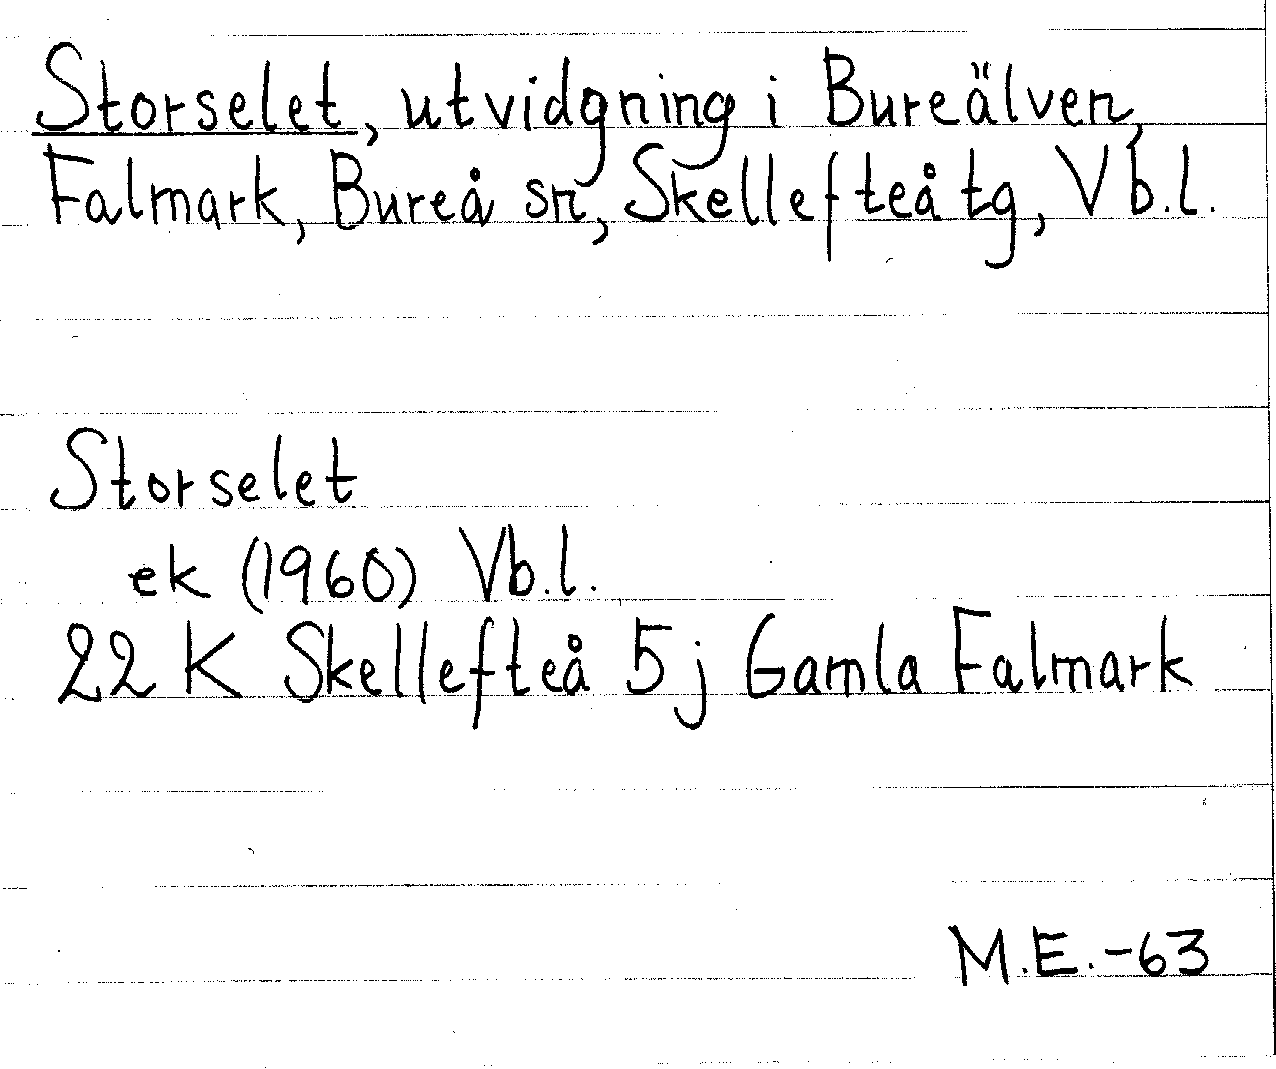 Storselet, utvidgning i Bureälven,
Falmark, Bureå sn, Skellefteå tg, Vb.l.
Storselet
ek (1960) Vb.l.
22 K Skellefteå 5 j Gamla Falmark
M.E.-63